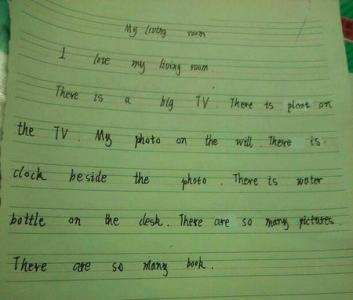 My living room
I love my living room.
There is a big TV. There is plant on
the TV. My photo on the will. There is
clock beside the photo. There is water
bottle on the desk. There are so many pictures.
There are so many book.